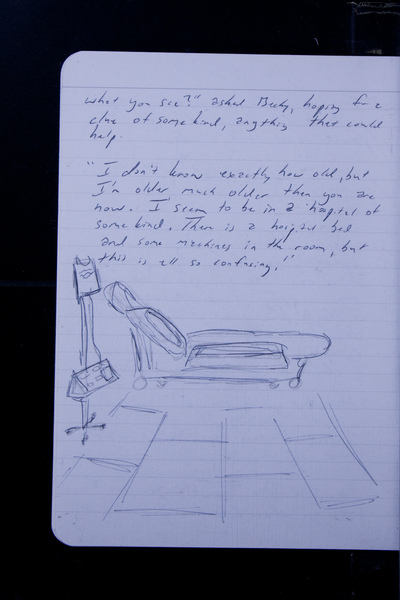 what you see?" asked Becky, hoping for a
clue of some kind, anything that could
help.
"I don't know exactly how old, but
I'm older much older then you are
now. I seem to be in a hospital of
some kind. There is a hospital bed
and some machines in the room, but
this is all so confusing."